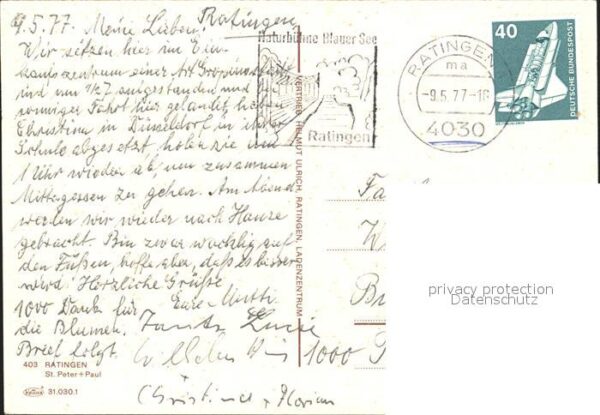 9.5.77. Meine Lieben! Ratingen
Wir sitzen hier im Ein-
kaufszentrum einer Art
sind um ausgestanden und
sonniger Fahrt hier gelandet, haben
Christina in Düsseldorf in ihrer
Schule abgesetzt, holen sie um
1 Uhr wieder ab, um zusammen
Mittagessen zu gehen. Am Abend
werden wir wieder nach Hause
gebracht. Bin zwar wacklig auf
den Füßen, hoffe aber, daß es besser
wird. Herzliche Grüße
1000 Dank für Eure Mutti
die Blumen. Tante
Brief folgt.
Christina + Florian
403 RATINGEN
St. Peter + Paul
Krüger 31.030.1
VERTRIEB: HELMUT ULRICH, RATINGEN, LADENZENTRUM
Naturbühne Blauer See
Ratingen
RATINGEN
ma
-9.5.77-16
4030
40
DEUTSCHE BUNDESPOST
Fa
W
B
1000
privacy protection
Datenschutz